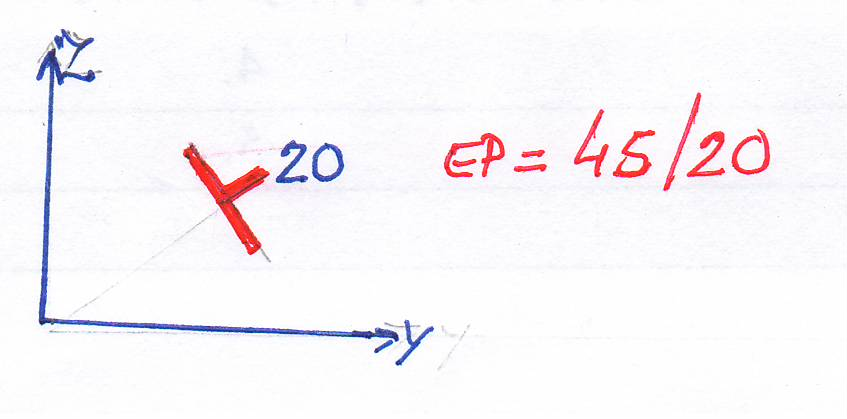 Z
20
EP = 45/20
y